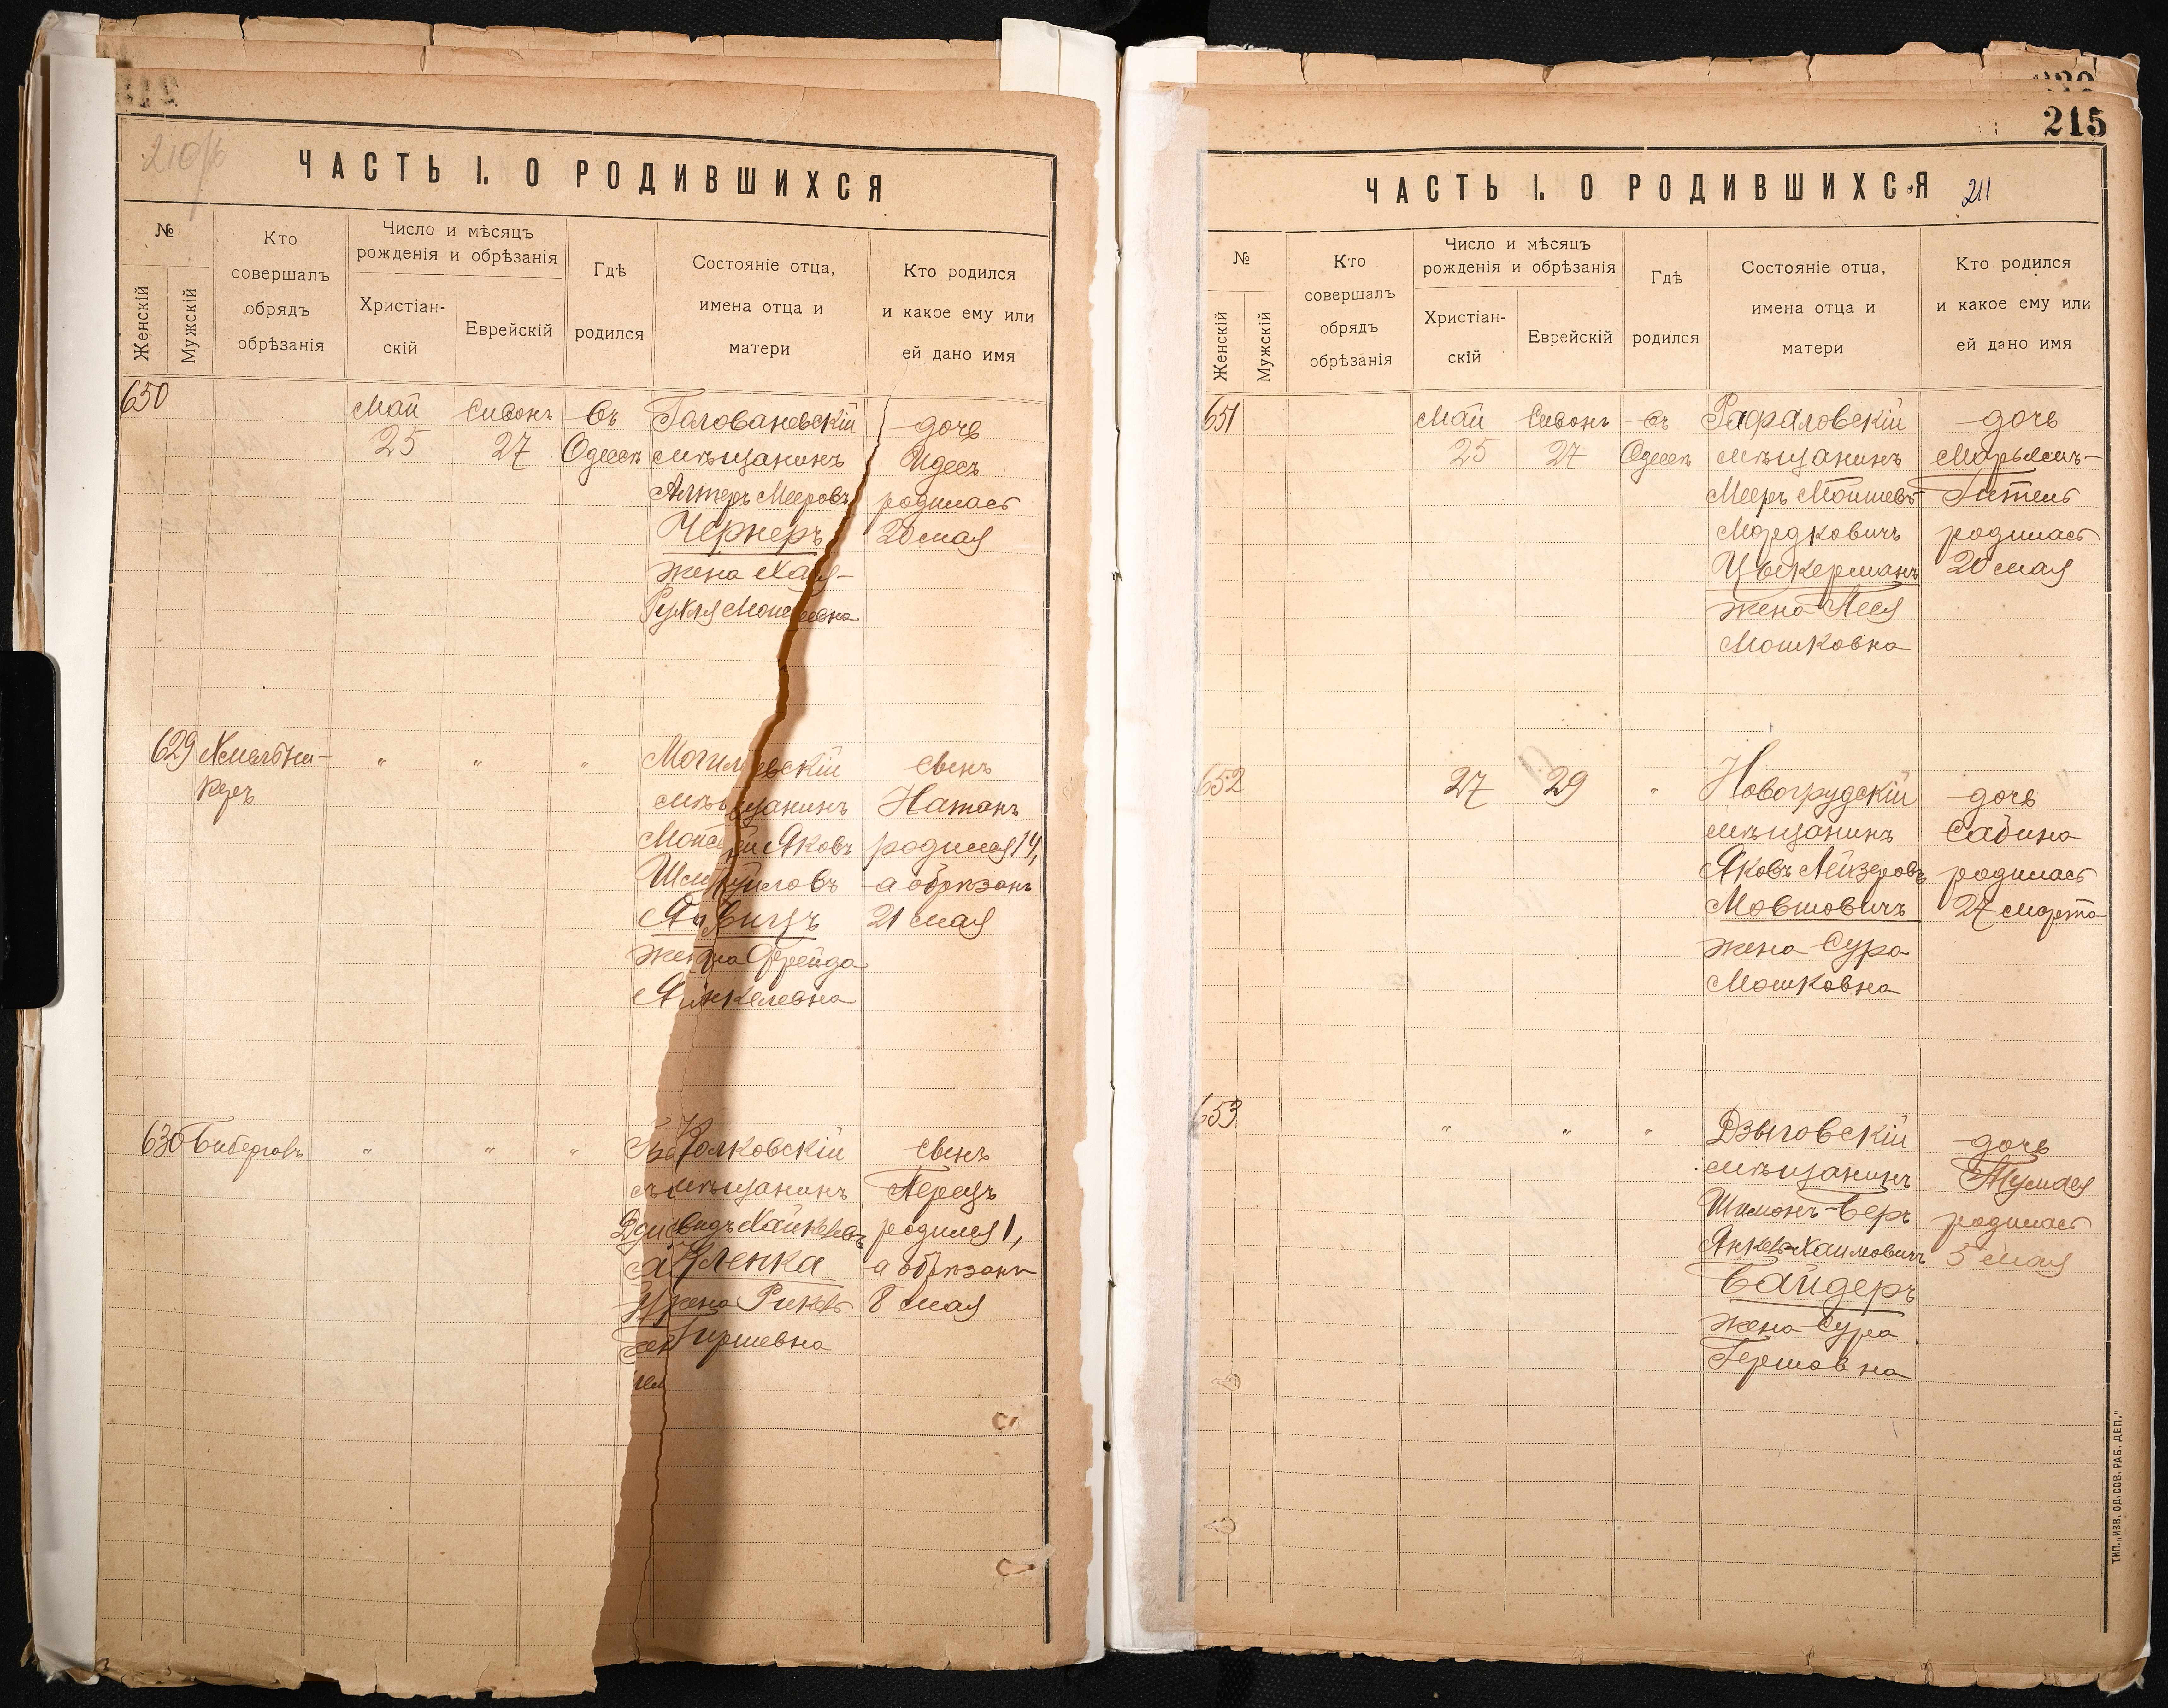 210
ЧАСТЬ I. О РОДИВШИХСЯ
№
Женскій
Мужскій
Кто
совершалъ
обрядъ
обрѣзанія
Число и мѣсяцъ
рожденія и обрѣзанія
Христіан-
скій
Еврейскій
Гдѣ
родился
Состояніе отца,
имена отца и
матери
Кто родился
и какое ему или
ей дано имя
650
Май
25
Сивонъ
27
въ
Одессѣ
Головановскій
мѣщанинъ
Алтеръ Мееровъ
Чернеръ
жена Хая-
Рухля
дочь
Идесъ
родилась
20 мая
629
„
„
„
мѣщанинъ
Яковъ
жена Фрейда
Янкелевна
сынъ
Натанъ
родился 14,
а обрѣзанъ
21 мая
630
„
„
„
мѣщанинъ
Хайкелевъ
жена
Гиршевна
сынъ
Перецъ
родился 1,
а обрѣзанъ
8 мая
215
ЧАСТЬ I. О РОДИВШИХСЯ
211
№
Женскій
Мужскій
Кто
совершалъ
обрядъ
обрѣзанія
Число и мѣсяцъ
рожденія и обрѣзанія
Христіан-
скій
Еврейскій
Гдѣ
родился
Состояніе отца,
имена отца и
матери
Кто родился
и какое ему или
ей дано имя
651
Май
25
Сивонъ
27
въ
Одессѣ
Рафаловскій
мѣщанинъ
Мееръ Мошневъ-
Мордковичъ
Цукерманъ
жена Песя
Мошковна
дочь
Марьямъ-
Гитель
родилась
20 мая
652
27
29
„
Новогрудскій
мѣщанинъ
Яковъ Лейзеровъ
Мовшовичъ
жена Сура
Мошковна
дочь
Сабина
родилась
27 марта
653
„
„
„
Дзыговскій
мѣщанинъ
Шимонъ-Беръ
Янкель-Хаимовичъ
Байдеръ
жена Сура
Гершовна
дочь
родилась
5 мая
ТИП. „ИЗВ. ОД. СОВ. РАБ. ДЕП."